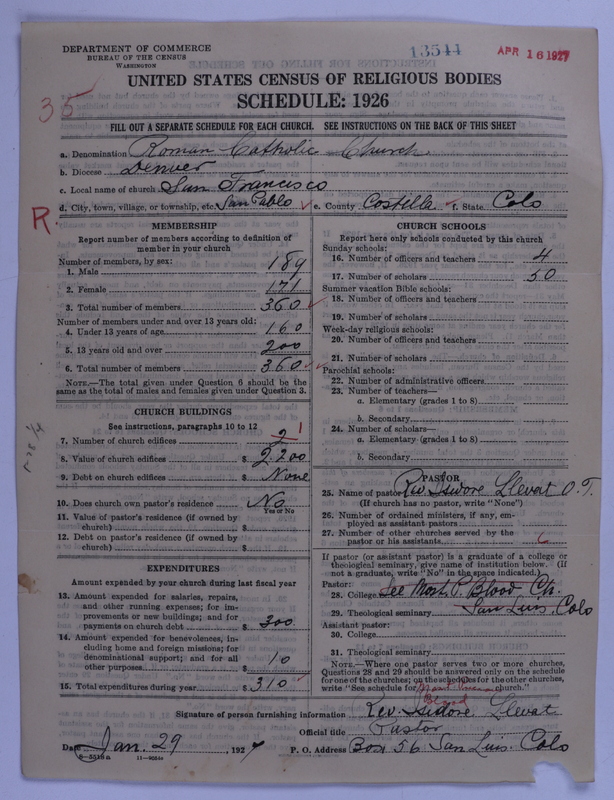 DEPARTMENT OF COMMERCE
BUREAU OF THE CENSUS
WASHINGTON
13544
APR 16 1927
UNITED STATES CENSUS OF RELIGIOUS BODIES
SCHEDULE: 1926
35
FILL OUT A SEPARATE SCHEDULE FOR EACH CHURCH. SEE INSTRUCTIONS ON THE BACK OF THIS SHEET
a. Denomination Roman Catholic Church
b. Diocese Denver
c. Local name of church San Francisco
d. City, town, village, or township, etc. San Pablo e. County Costilla f. State Colo
R
MEMBERSHIP
Report number of members according to definition of member in your church
Number of members, by sex:
1. Male 189
2. Female 171
3. Total number of members 360
Number of members under and over 13 years old:
4. Under 13 years of age 160
5. 13 years old and over 200
6. Total number of members 360
NOTE.—The total given under Question 6 should be the same as the total of males and females given under Question 3.
CHURCH BUILDINGS
See instructions, paragraphs 10 to 12
7. Number of church edifices 2 1
8. Value of church edifices $ 2.200
9. Debt on church edifices $ None
10. Does church own pastor's residence No
Yes or No
11. Value of pastor's residence (if owned by church) $
12. Debt on pastor's residence (if owned by church) $
EXPENDITURES
Amount expended by your church during last fiscal year
13. Amount expended for salaries, repairs, and other running expenses; for improvements or new buildings; and for payments on church debt $ 300
14. Amount expended for benevolences, including home and foreign missions; for denominational support; and for all other purposes $ 10
15. Total expenditures during year $ 310
CHURCH SCHOOLS
Report here only schools conducted by this church
Sunday schools:
16. Number of officers and teachers 4
17. Number of scholars 50
Summer vacation Bible schools:
18. Number of officers and teachers
19. Number of scholars
Week-day religious schools:
20. Number of officers and teachers
21. Number of scholars
Parochial schools:
22. Number of administrative officers
23. Number of teachers—
a. Elementary (grades 1 to 8)
b. Secondary
24. Number of scholars—
a. Elementary (grades 1 to 8)
b. Secondary
PASTOR
25. Name of pastor Rev. Isidore Llevat O. T.
(If church has no pastor, write "None")
26. Number of ordained ministers, if any, employed as assistant pastors
27. Number of other churches served by the pastor or his assistants 6
If pastor (or assistant pastor) is a graduate of a college or theological seminary, give name of institution below. (If not a graduate, write "No" in the space indicated.)
Pastor:
28. College See Most P. Blood Ch.
29. Theological seminary San Luis Colo
Assistant pastor:
30. College
31. Theological seminary
NOTE.—Where one pastor serves two or more churches, Questions 28 and 29 should be answered only on the schedule for one of the churches; on the schedules for the other churches, write "See schedule for Most Precious Blood church."
Signature of person furnishing information Rev. Isidore Llevat
Official title Pastor
Date Jan. 29, 1927 P. O. Address Box 56 San Luis. Colo
8—5518a 11—9034